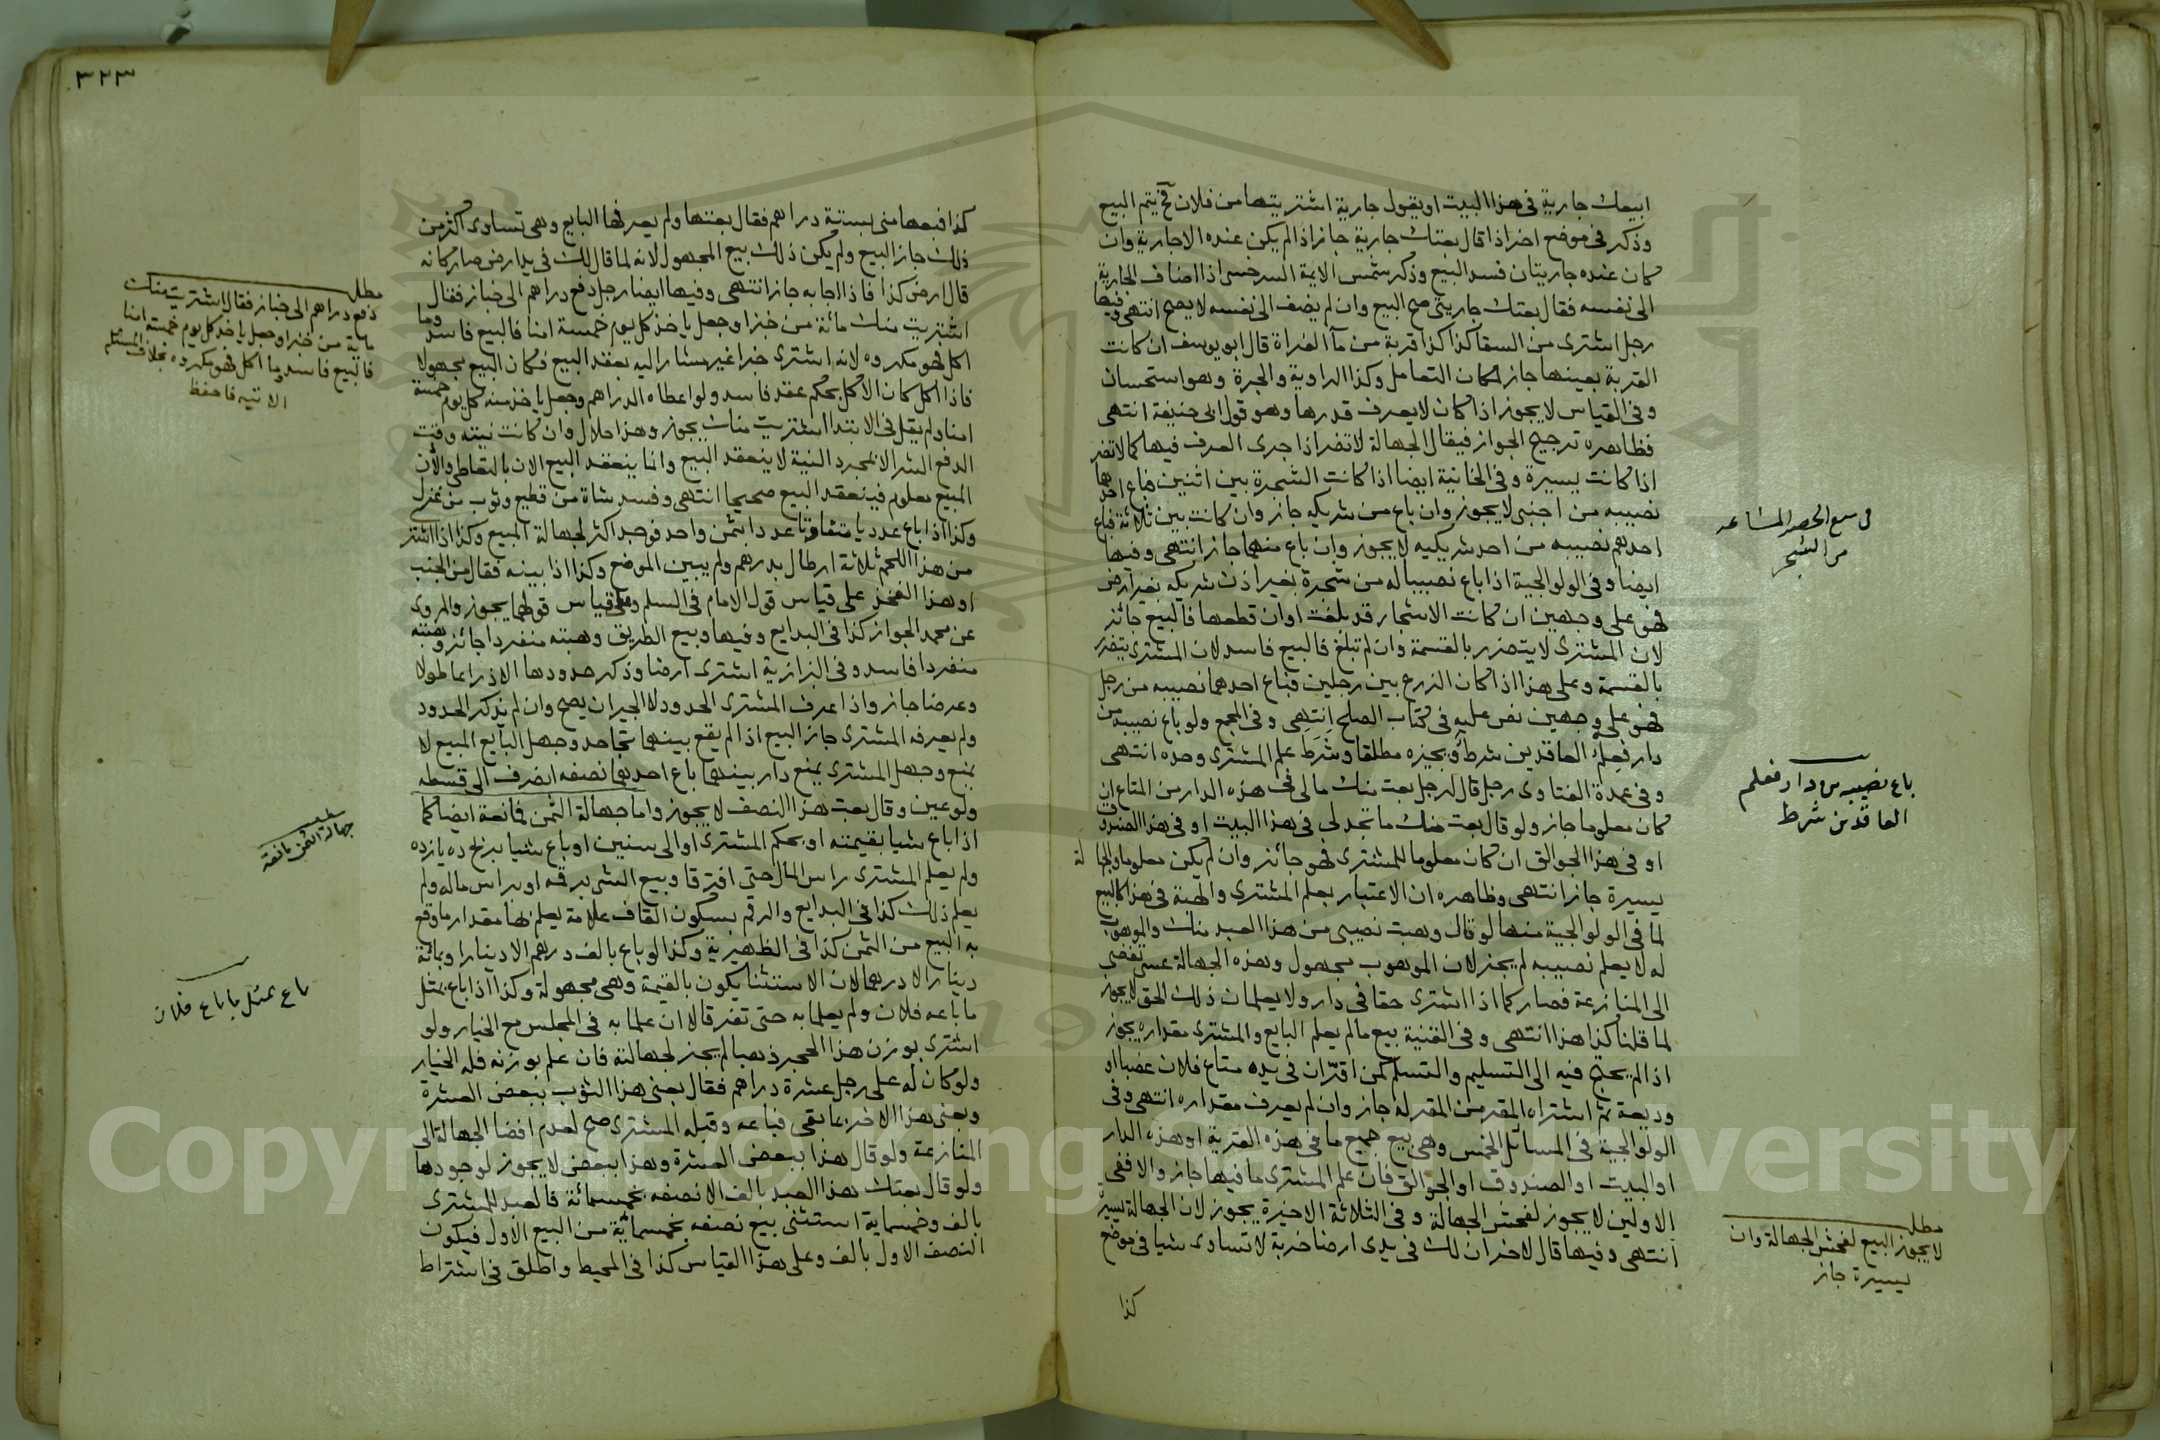 ابيعك جارية في هذا البيت او يقول جارية اشتريتها من فلان فح يتم البيع
وذكر في موضع اخر اذا قال بعتك جارية جاز اذا لم يكن عنده الا جارية وان
كان عنده جاريتان فسد البيع وذكر شمس الايمة السرخسي اذا اضاف الجارية
الى نفسه فقال بعتك جاريتي صح البيع وان لم يضف الى نفسه لا يصح انتهى وفيها
رجل اشترى من السقا كذا كذا قربة من مآ الفراة قال ابو يوسف ان كانت
القربة بعينها جاز لمكان التعامل وكذا الراوية والجرة وهو استحسان
وفي القياس لا يجوز اذا كان لا يعرف قدرها وهو قول ابي حنيفة انتهى
فظاهره ترجيح الجواز فيقال الجهالة لا تضر اذا جرى العرف فيها كما لا تضر
اذا كانت يسيرة وفي الخانية ايضا اذا كانت الشجرة بين اثنين فباع احدهما
نصيبه من اجنبي لا يجوز وان باع من شريكه جاز وان كانت بين ثلاثة فباع
احدهم نصيبه من احد شريكيه لا يجوز وان باع منهما جاز انتهى وفيها
ايضا وفي الولوالجية اذا باع نصيبا له من شجرة بغير اذن شريكه بغير ارض
فهو على وجهين ان كانت الاشجار قد بلغت اوان قطعها فالبيع جائز
لان المشترى لا يتضرر بالقسمة وان لم تبلغ فالبيع فاسد لان المشترى يتضرر
بالقسمة وعلى هذا اذا كان الزرع بين رجلين فباع احدهما نصيبه من رجل
فهو على وجهين نص عليه في كتاب الصلح انتهى وفي المجمع ولو باع نصيبه من
دار فعلم العاقدين شرط ويجيزه مطلقا وشرط علم المشترى وحده انتهى
وفي عمدة الفتاوى رجل قال لرجل بعت منك ما لي في هذه الدار من المتاع ان
كان معلوما جاز ولو قال بعت منك ما تجد لي في هذا البيت او في هذا الصندوق
او في هذا الجوالق ان كان معلوما للمشترى فهو جائز وان لم يكن معلوما والجهالة
يسيرة جاز انتهى وظاهره ان الاعتبار بعلم المشترى والهبة في هذا كالبيع
لما في الولوالجية منها لو قال وهبت نصيبي من هذا العبد منك والموهوب
له لا يعلم نصيبه لم يجز لان الموهوب مجهول وهذه الجهالة عسى تفضي
الى المنازعة فصار كما اذا اشترى حقا في دار ولا يعلمان ذلك الحق لا يجوز
لما قلنا كذا هذا انتهى وفي القنية بيع ما لم يعلم البايع والمشترى مقداره يجوز
اذا لم يحتج فيه الى التسليم والتسلم كمن اقر ان في يده متاع فلان غصبا او
وديعة ثم اشتراه المقر من المقر له جاز وان لم يعرف مقداره انتهى وفي
الولوالجية في المسائل الخمس وهي بيع جميع ما في هذه القرية او هذه الدار
او البيت او الصندوق او الجوالق فان علم المشترى بما فيها جاز والا ففي
الاولين لا يجوز لفحش الجهالة وفي الثلاثة الاخيرة يجوز لان الجهالة يسيرة
انتهى وفيها قال لاخر ان لك في يدى ارضا خربة لا تساوى شيا في موضع
كذا
في بيع الحصه المشاعه
من الشجر
باع نصيبه من دار فعلم
العاقدين شرط
مطلب
لا يجوز البيع لفحش الجهالة وان
يسيرة جاز
٣٢٣
كذا فبعها مني بستة دراهم فقال بعتها ولم يعرفها البايع وهي تساوى اكثر من
ذلك جاز البيع ولم يكن ذلك بيع المجهول لانه لما قال لك في يدى ارض صار كانه
قال ارض كذا فاذا اجابه جاز انتهى وفيها ايضا رجل دفع دراهم الى خباز فقال
اشتريت منك مائة من خبز وجعل ياخذ كل يوم خمسة امنا فالبيع فاسد وما
اكل فهو مكروه لانه اشترى خبزا غير مشار اليه بعقد البيع فكان البيع مجهولا
فاذا اكل كان الاكل بحكم عقد فاسد ولو اعطاه الدراهم وجعل ياخذ منه كل يوم خمسة
امنا ولم يقل في الابتدا اشتريت منك يجوز وهذا حلال وان كانت نيته وقت
الدفع الشرا لان بمجرد النية لا ينعقد البيع وانما ينعقد البيع الان بالتعاطي والان
المبيع معلوم فينعقد البيع صحيحا انتهى وفسد شاة من قطيع وثوب من عدل
وكذا اذا باع عدديا متفاوتا عددا بثمن واحد فوجد اكثر لجهالة المبيع وكذا اذا اشترى
من هذا اللحم ثلاثة ارطال بدرهم ولم يبين الموضع وكذا اذا بينه فقال من الجنب
او هذا الفخذ على قياس قول الامام في السلم وعلى قياس قولهما يجوز والمروى
عن محمد الجواز كذا في البدايع وفيها وبيع الطريق وهبته منفردا جائز وهبته
منفردا فاسد وفي البزازية اشترى ارضا وذكر حدودها لا ذراعها طولا
وعرضا جاز واذا عرف المشترى الحدود لا الجيران يصح وان لم يذكر الحدود
ولم يعرفه المشترى جاز البيع اذا لم يقع بينهما تجاحد وجهل البايع المبيع لا
يمنع وجهل المشترى يمنع دار بينهما باع احدهما نصفه انصرف الى قسطه
ولو عين وقال بعت هذا النصف لا يجوز واما جهالة الثمن فمانعة ايضا كما
اذا باع شيا بقيمته او بحكم المشترى او الى سنين او باع شيا بربح ده يازده
ولم يعلم المشترى راس المال حتى افترقا وبيع الشي برقمه او براس ماله ولم
يعلم ذلك كذا في البدايع والرقم بسكون القاف علامة يعلم بها مقدار ما وقع
به البيع من الثمن كذا في الظهيرية وكذا لو باع بالف درهم الا دينارا وبمائة
دينار الا درهما لان الاستثنا يكون بالقيمة وهي مجهولة وكذا اذا باع بمثل
ما باعه فلان ولم يعلما به حتى تفرقا لا ان علما به في المجلس مع الخيار ولو
اشترى بوزن هذا الحجر ذهبا لم يجز لجهالته فان علم بوزنه فله الخيار
ولو كان له على رجل عشرة دراهم فقال بعني هذا الثوب ببعض العشرة
وبعني هذا الاخر بما بقي فباعه وقبله المشترى صح لعدم افضا الجهالة الى
المنازعة ولو قال هذا ببعض العشرة وهذا ببعض لا يجوز لوجودها
ولو قال بعتك هذا العبد بالف الا نصفه بخمسمائة فالعبد للمشترى
بالف وخمسماية استثنى بيع نصفه بخمسماية من البيع الاول فيكون
النصف الاول بالف وعلى هذا القياس كذا في المحيط واطلق في اشتراط
مطلب
دفع دراهم الى خباز فقال اشتريت منك
ماية من خبز وجعل ياخذ كل يوم خمسة امنا
فالبيع فاسد وما اكل فهو مكروه بخلاف المسئلة
الاتيه فاحفظ
جهالة الثمن مانعة
باع بمثل ما باع فلان
Copyright © King Saud University